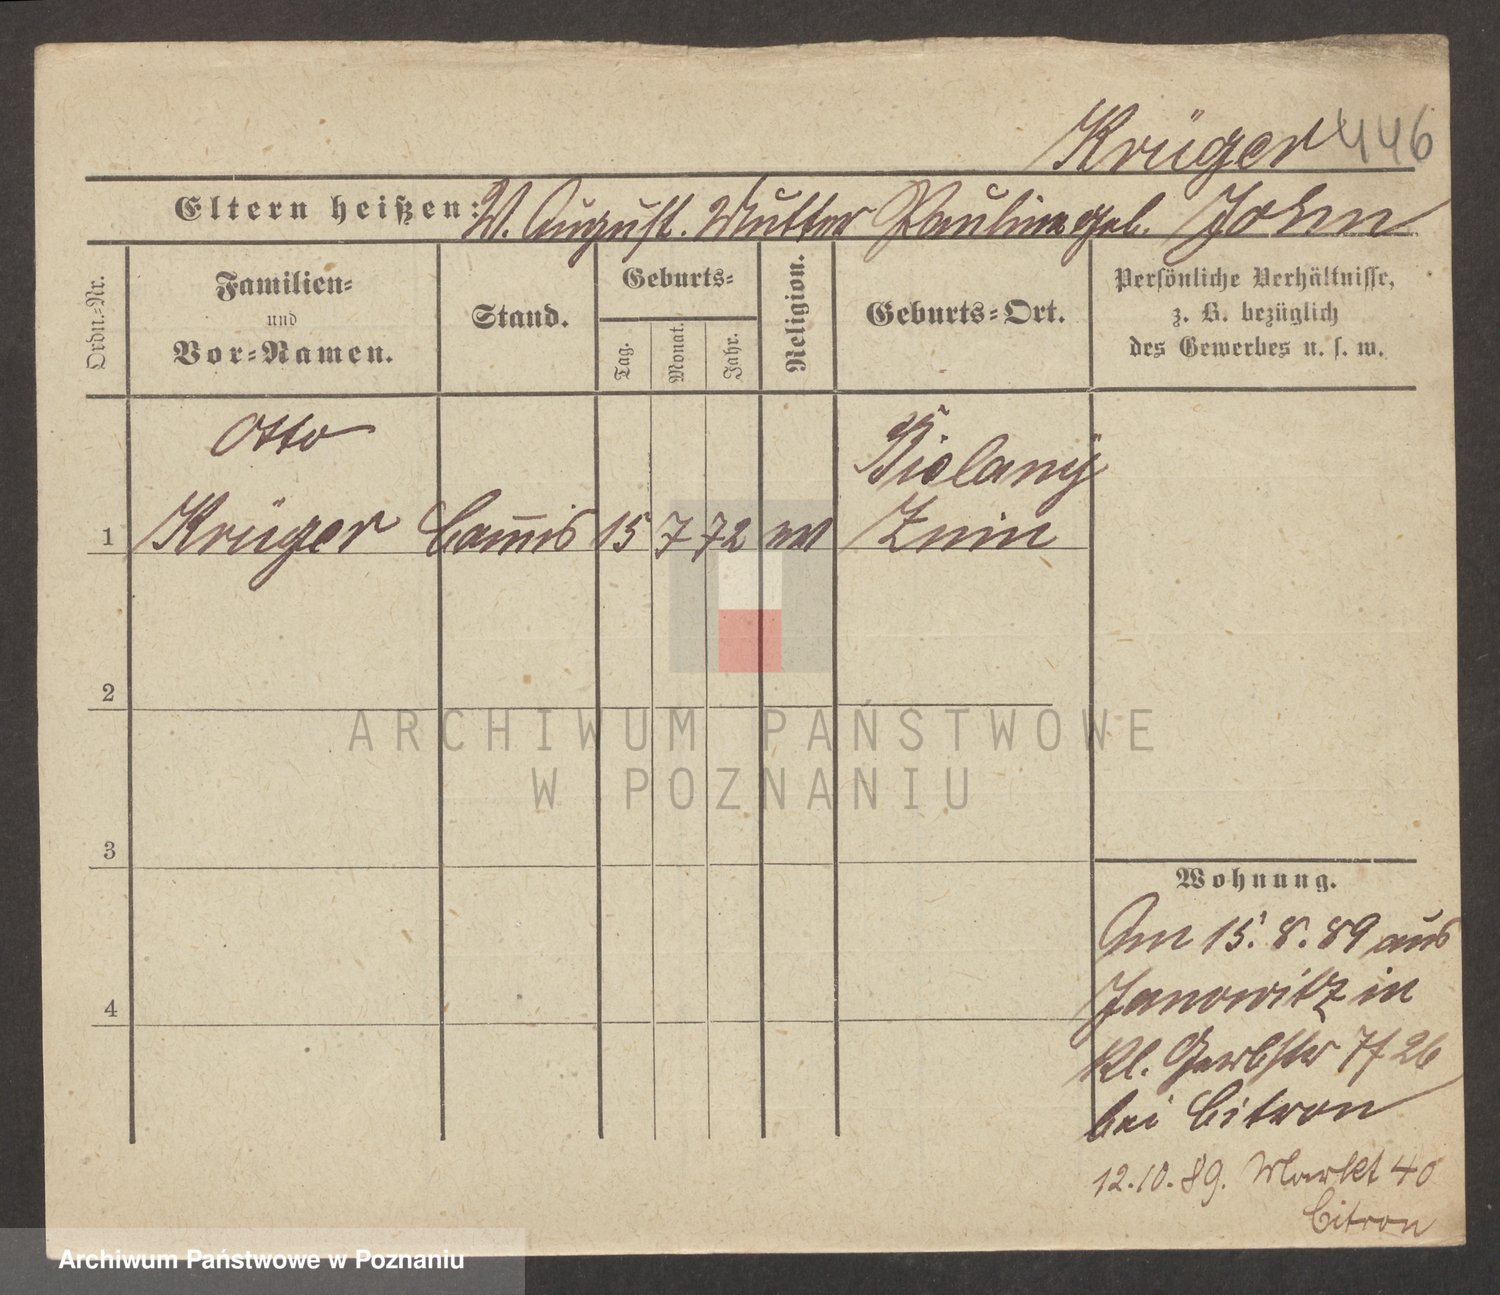 Krüger 446
Eltern heißen: V. August. Mutter Pauline geb. John
Ordn.-Nr.
Familien-
und
Vor-Namen.
Stand.
Geburts-
Tag.
Monat.
Jahr.
Religion.
Geburts-Ort.
Persönliche Verhältnisse,
z. B. bezüglich
des Gewerbes u. s. w.
Otto
Bielawy
1 Krüger Commis 15 7 72 Znin
2
3
4
ARCHIWUM PAŃSTWOWE
W POZNANIU
Wohnung.
Am 15.8.89 aus
Janowitz in
Kl. Gerbstr
bei Citron
12.10.89. Markt 40
Citron
Archiwum Państwowe w Poznaniu